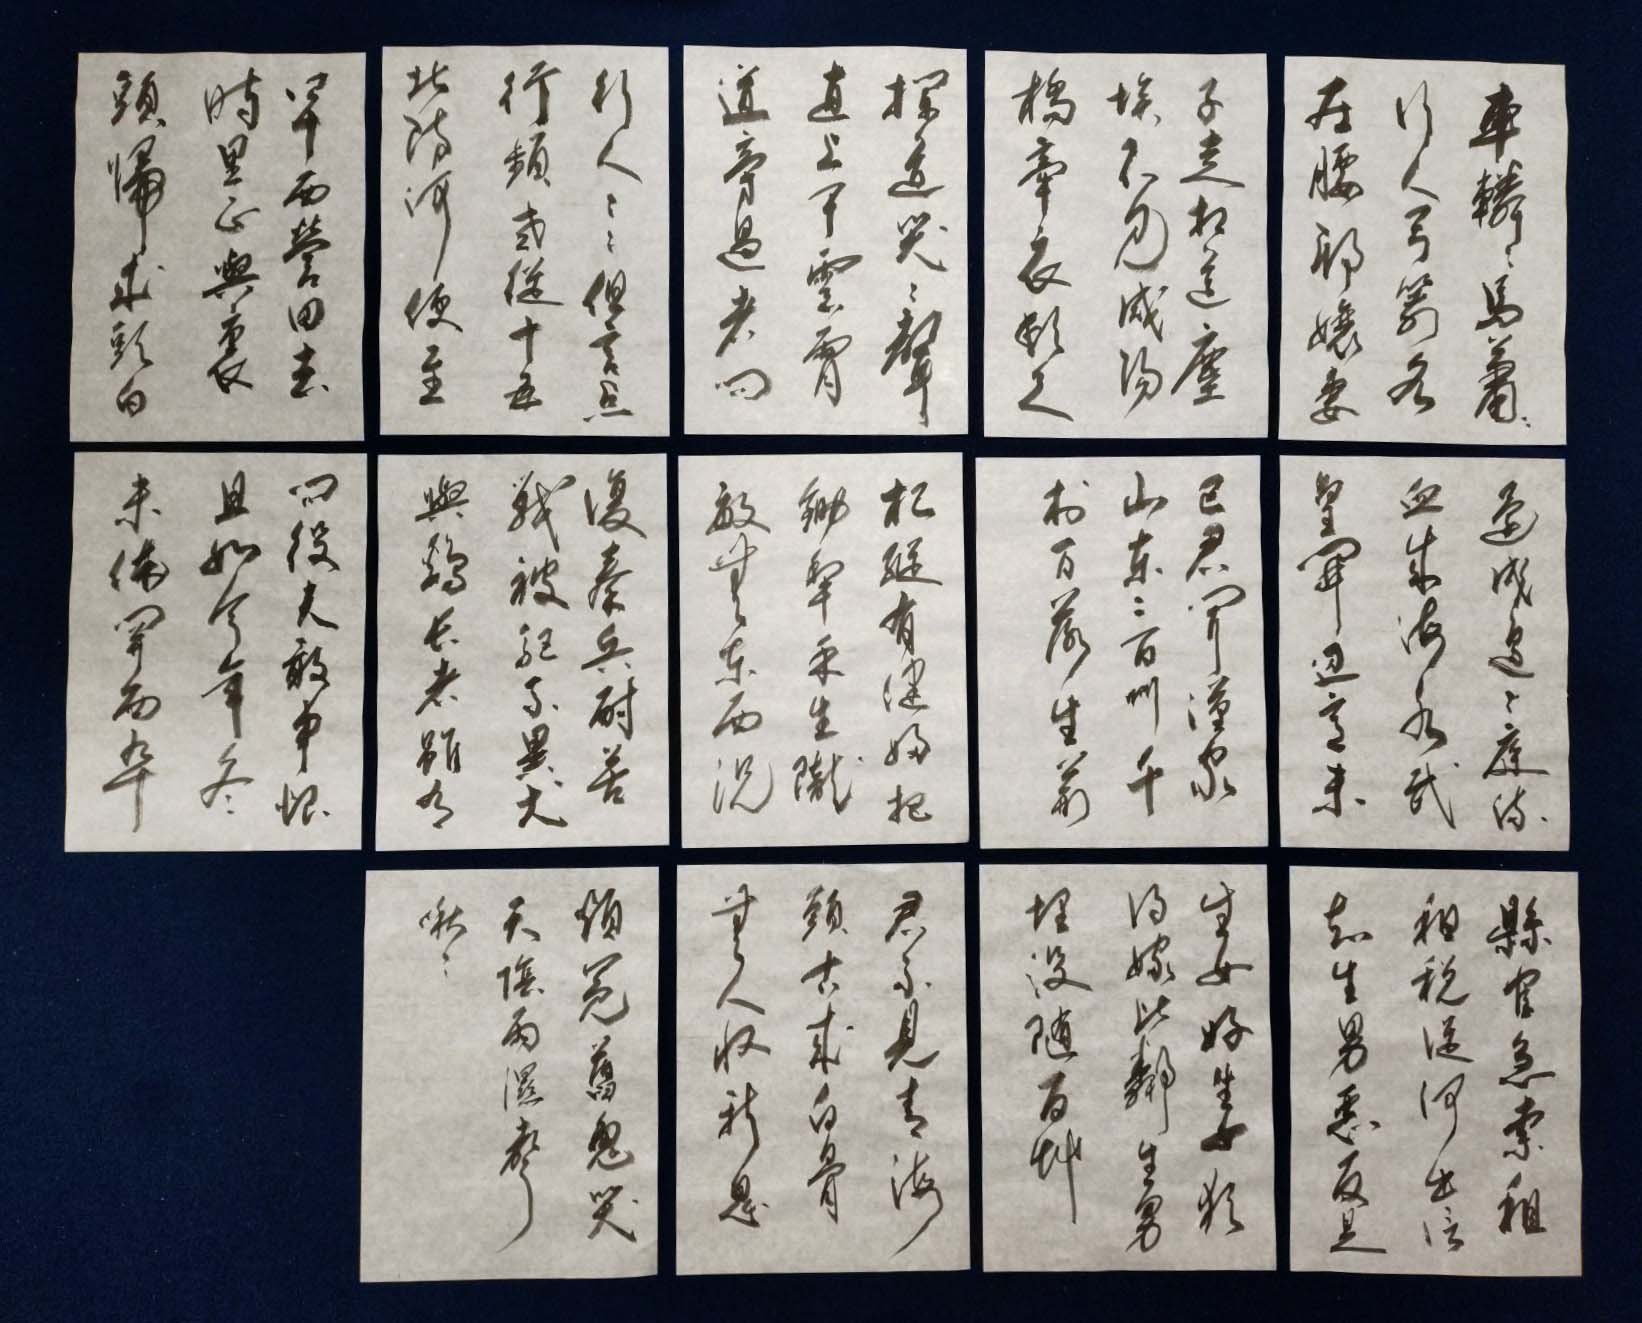 車轔々馬蕭々
行人弓箭各
在腰耶孃妻
子走相送塵
埃不見咸陽
橋牽衣頓足
攔道哭々聲
直上干雲霄
道旁過者問
行人々々但言點
行頻或從十五
北防河便至
四十西營田去
時里正與裹
頭歸來頭白
還戍邊々庭流
血成海水武
皇開邊意未
已君聞漢家
山東二百州千
村百落生荊
杞縱有健婦把
鋤犁禾生隴
畝無東西況
復秦兵耐苦
戰被驅不異犬
與鷄長者雖有
問役夫敢申恨
且如今年冬
未休關西卒
縣官急索租
租税從何出信
知生男惡反是
生女好生女猶
得嫁比鄰生男
埋没隨百草
君不見青海
頭古來白骨
無人收新鬼
煩冤舊鬼哭
天陰雨濕聲
啾々